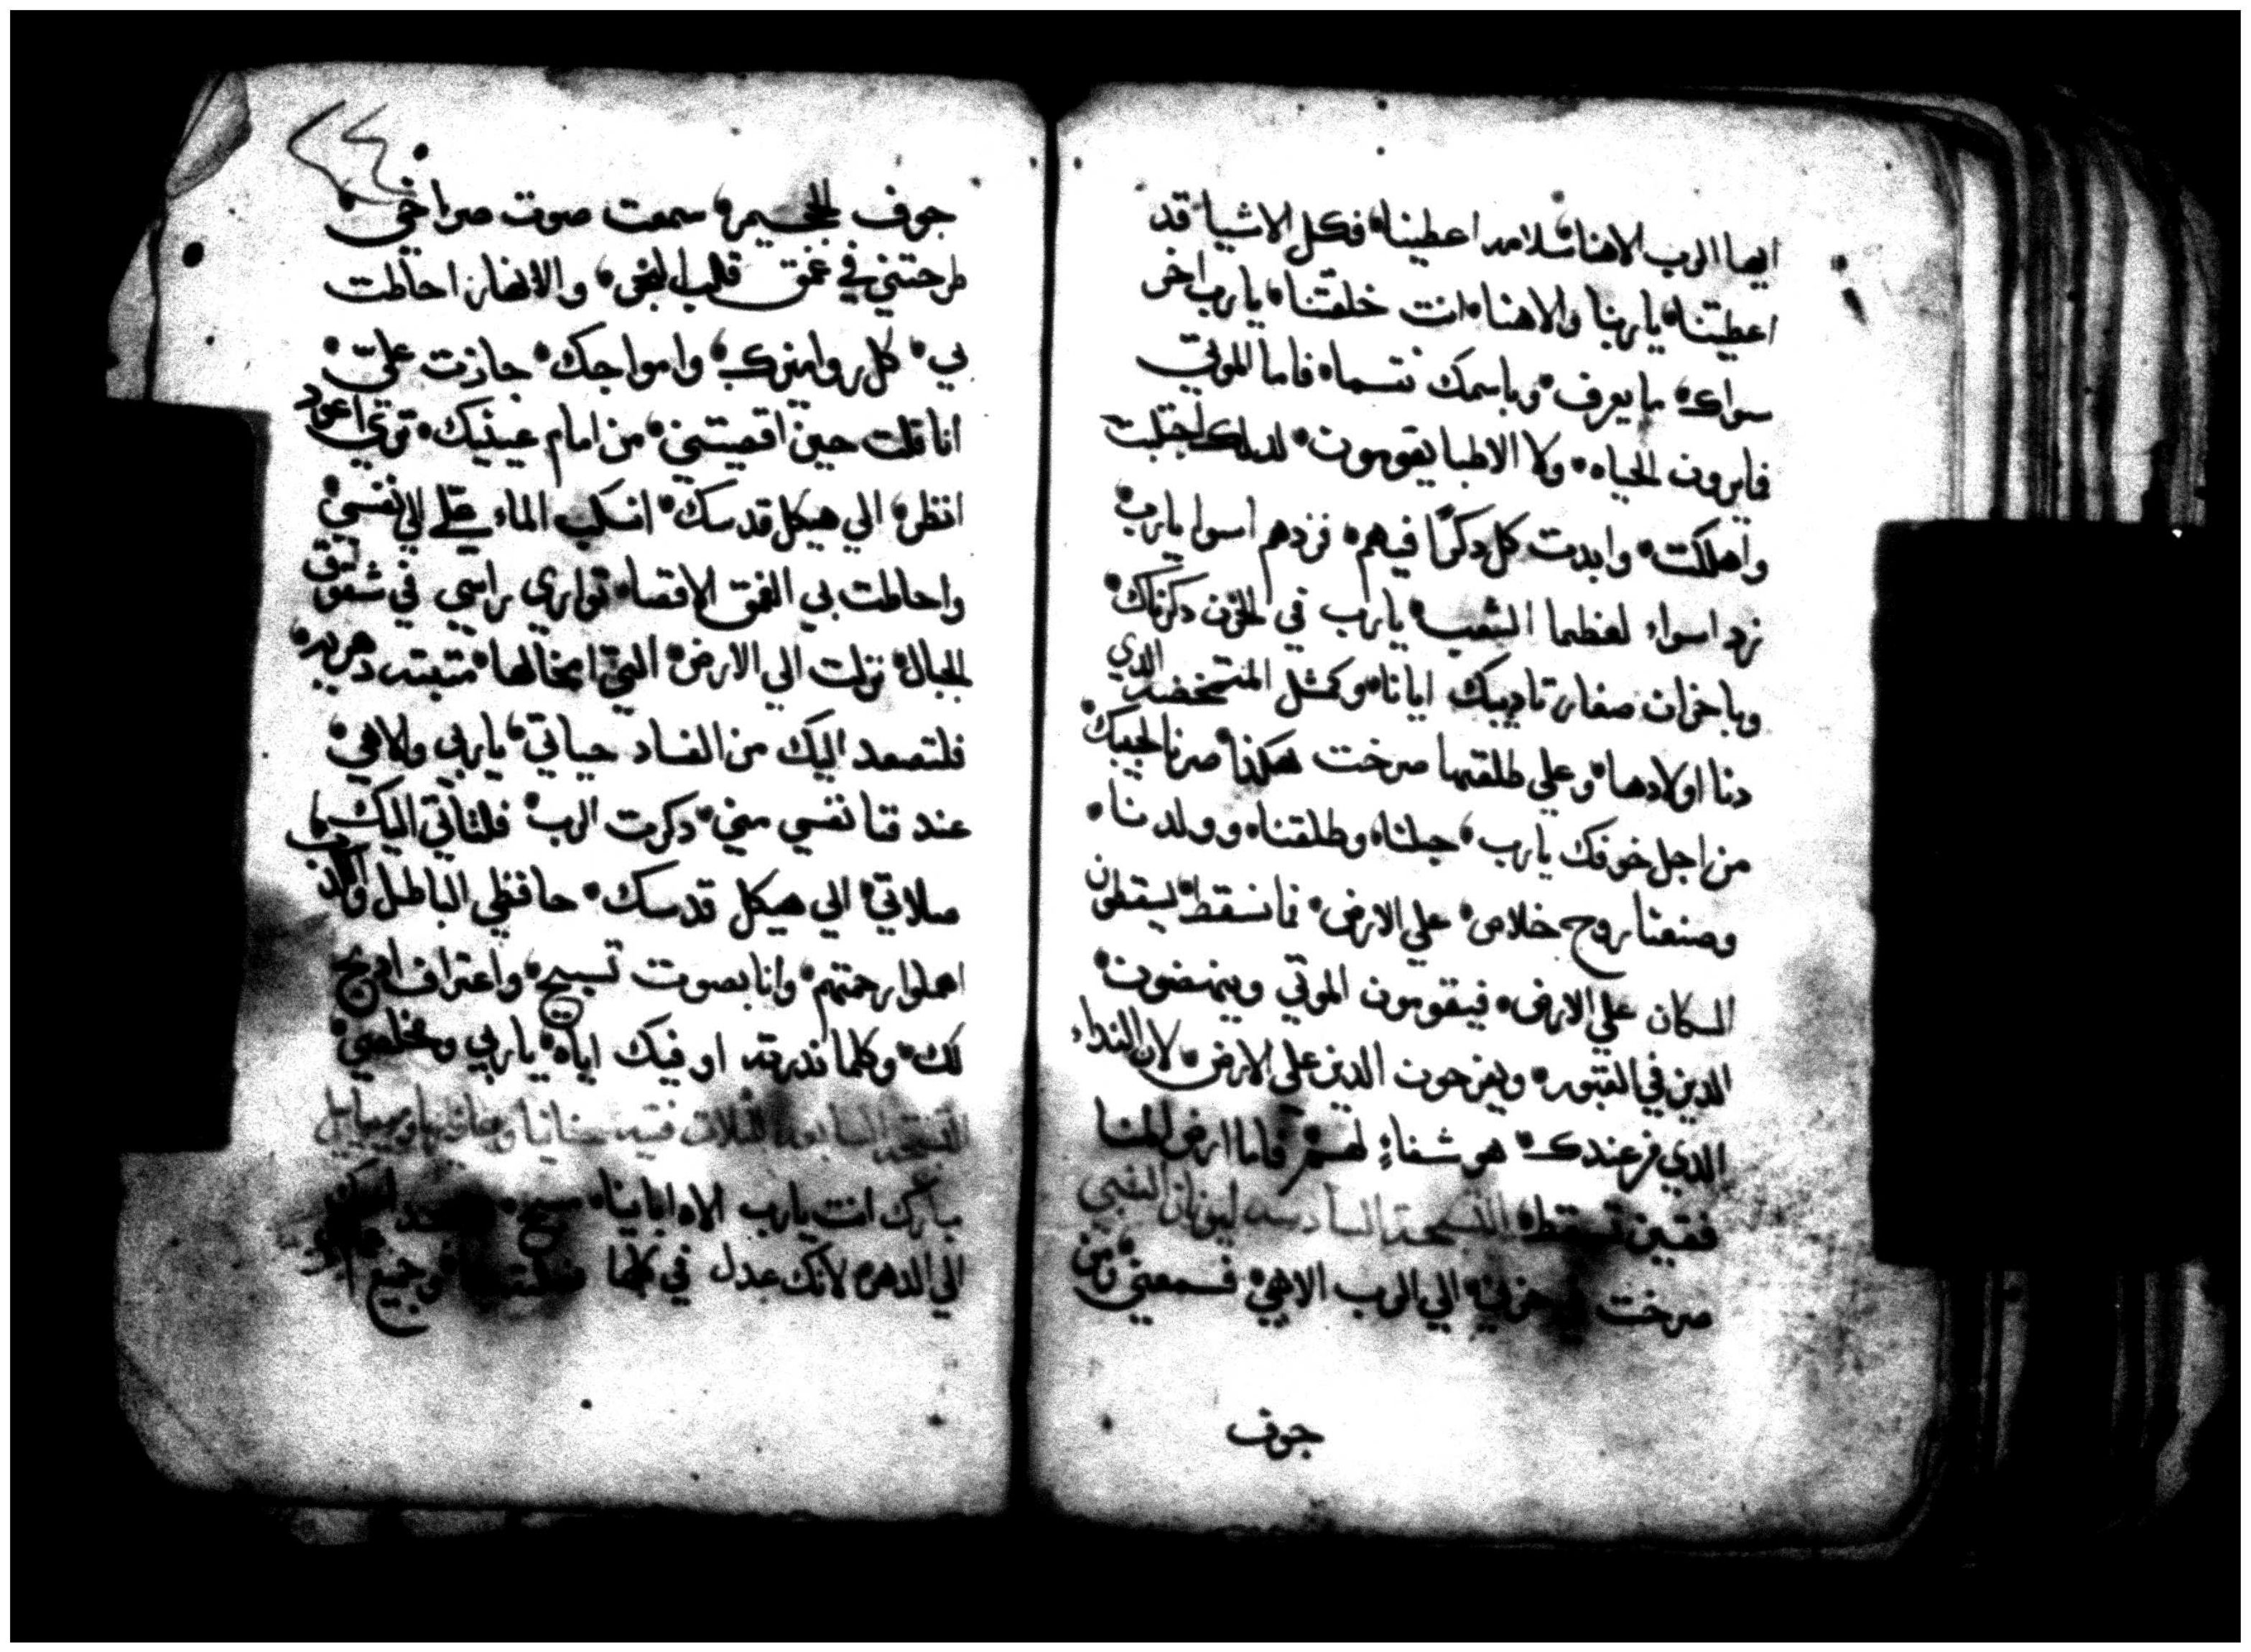 ايها الرب الاهنا سلامه اعطينا فكل الاشيا قد
اعطيتنا يا ربنا والاهنا انت خلقتنا يا رب اخر
سواك ما يعرف وباسمك نتسما فاما الموتي
فايرون الحياه ولا الاطبا يقومون لدلك اجتلبت
واهلكت وابدت كل دكرًا فيهم فزدهم اسوا يا رب
زد اسواء لعظما الشعب يا رب في الحزن دكرناك
وباخزان صغار تاديبك ايانا وكمثل المتمخضه الدي
دنا اولادها وعلي طلقتها صرخت هكذا صرنا لحبيبك
من اجل خوفك يا رب حبلنا وطلقنا وولدنا
وصنعنا روح خلاص علي الارض فما نسقط ليسقطن
السكان علي الارض فيقومون الموتي وينهضون
الدين في القبور ويفرحون الدين علي الارض لان النداء
الدي من عندك هو شفاءٍ لهم فاما ارض المنا
فقين تسقط التسبحه السادسه ليونان النبي
صرخت في حزني الي الرب الاهي فسمعني من
جوف
جوف الجحيم سمعت صوت صراخي
طرحتني في عمق قلب البحر والانهار احاطت
بي كل روامزك وامواجك جازت علي
انا قلت حين اقصيتني من امام عينيك تري اعود
انظر الي هيكل قدسك انسكب الماء علي الي نفسي
واحاطت بي الغمق الاقصا تواري راسي في شقوق
الجبال نزلت الي الارض التي امخالها متبته دهريه
فلتصعد اليك من الفساد حياتي يا ربي والاهي
عند فنا نفسي مني دكرت الرب فلتاتي اليك
صلاتي الي هيكل قدسك حافظي الباطل والكذب
اهملوا رحمتهم وانا بصوت تسبيح واعتراف ادبح
لك وكلما ندرته اوفيك اياه يا ربي ومخلصي
التسبحه السابعه التلات فتيه حنانيا وعازريا وميصاييل
مبارك انت يا رب الاه اباينا مسبح اسمك
الي الدهر لانك عدل في كلما وجميع